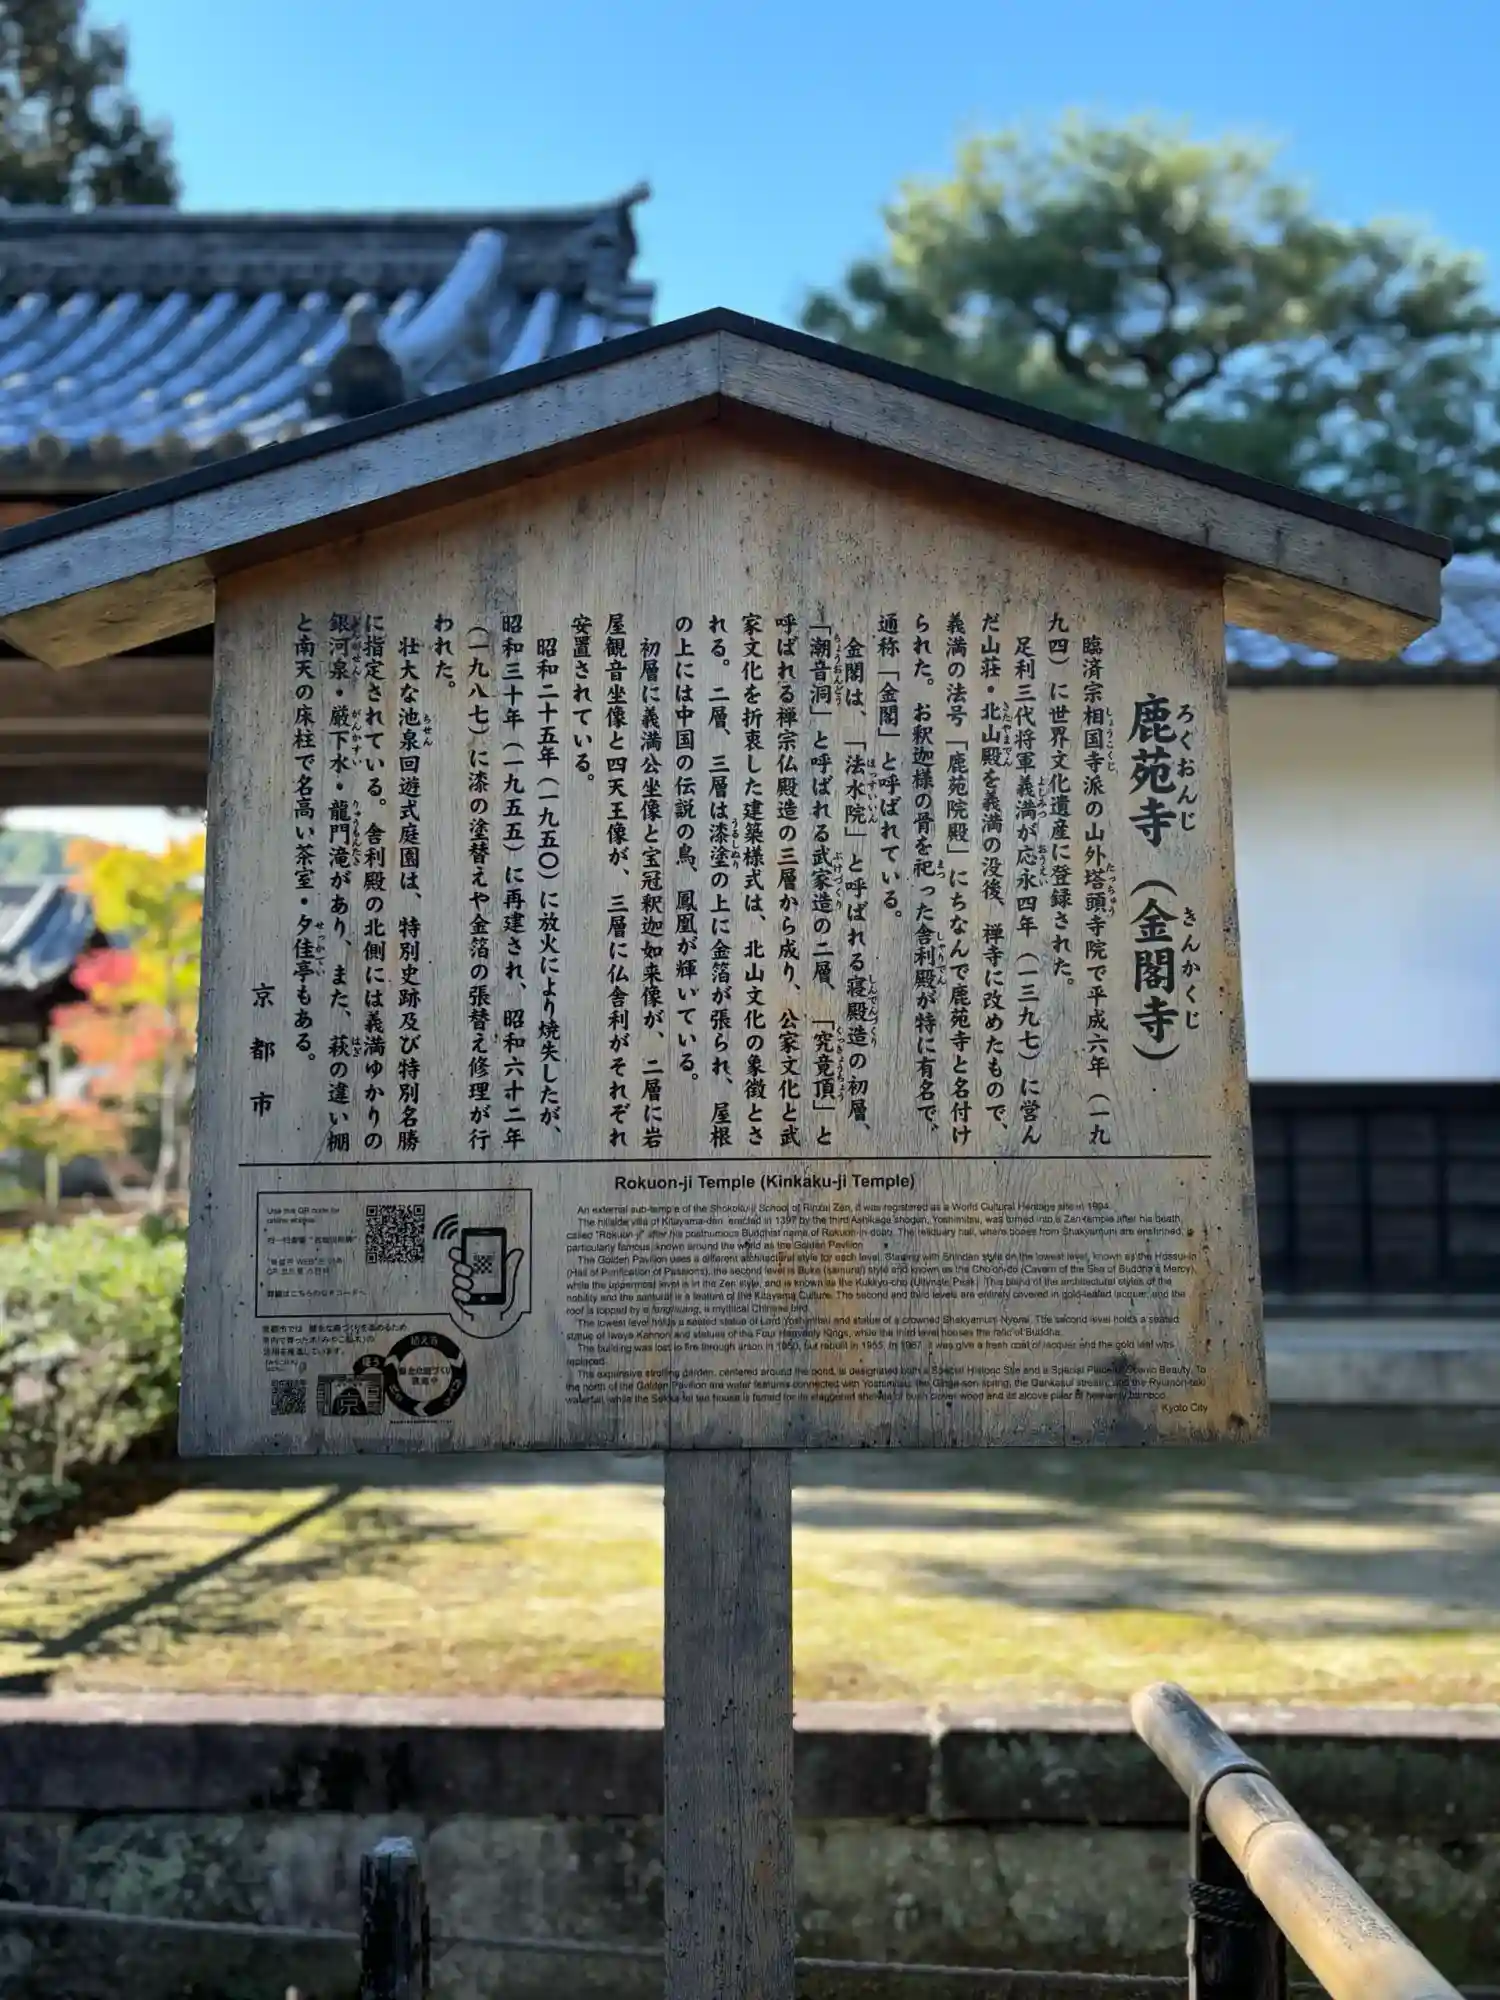 鹿苑寺(金閣寺)
ろくおんじ きんかくじ
臨済宗相国寺派の山外塔頭寺院で平成六年(一九
九四)に世界文化遺産に登録された。
足利三代将軍義満が応永四年(一三九七)に営ん
だ山荘・北山殿を義満の没後、禅寺に改めたもので、
義満の法号「鹿苑院殿」にちなんで鹿苑寺と名付け
られた。お釈迦様の骨を祀った舎利殿が特に有名で、
通称「金閣」と呼ばれている。
金閣は、「法水院」と呼ばれる寝殿造の初層、
「潮音洞」と呼ばれる武家造の二層、「究竟頂」と
呼ばれる禅宗仏殿造の三層から成り、公家文化と武
家文化を折衷した建築様式は、北山文化の象徴とさ
れる。二層、三層は漆塗の上に金箔が張られ、屋根
の上には中国の伝説の鳥、鳳凰が輝いている。
初層に義満公坐像と宝冠釈迦如来像が、二層に岩
屋観音坐像と四天王像が、三層に仏舎利がそれぞれ
安置されている。
昭和二十五年(一九五〇)に放火により焼失したが、
昭和三十年(一九五五)に再建され、昭和六十二年
(一九八七)に漆の塗替えや金箔の張替え修理が行
われた。
壮大な池泉回遊式庭園は、特別史跡及び特別名勝
に指定されている。舎利殿の北側には義満ゆかりの
銀河泉・巌下水・龍門滝があり、また、萩の違い棚
と南天の床柱で名高い茶室・夕佳亭もある。
京都市
Rokuon-ji Temple (Kinkaku-ji Temple)
An external sub-temple of the Shokoku-ji School of Rinzai Zen, it was registered as a World Cultural Heritage site in 1994.
The hillside villa of Kitayama-den, erected in 1397 by the third Ashikaga shogun, Yoshimitsu, was turned into a Zen temple after his death,
called "Rokuon-ji" after his posthumous Buddhist name of Rokuon-in-dono. The reliquary hall, where bones from Shakyamuni are enshrined, is
particularly famous, known around the world as the Golden Pavilion.
The Golden Pavilion uses a different architectural style for each level. Starting with Shinden style on the lowest level, known as the Hossui-in
(Hall of Purification of Passions), the second level is Buke (samurai) style and known as the Cho'on-do (Cavern of the Sea of Buddha's Mercy),
while the uppermost level is in the Zen style, and is known as the Kukkyo-cho (Ultimate Peak). This blend of the architectural styles of the
nobility and the samurai is a feature of the Kitayama Culture. The second and third levels are entirely covered in gold-leafed lacquer, and the
roof is topped by a fenghuang, a mythical Chinese bird.
The lowest level holds a seated statue of Lord Yoshimitsu and statue of a crowned Shakyamuni Nyorai. The second level holds a seated
statue of Iwaya Kannon and statues of the Four Heavenly Kings, while the third level houses the relic of Buddha.
The building was lost to fire through arson in 1950, but rebuilt in 1955. In 1987 it was give a fresh coat of lacquer and the gold leaf was
replaced.
The expansive strolling garden, centered around the pond, is designated both a Special Historic Site and a Special Place of Scenic Beauty. To
the north of the Golden Pavilion are water features connected with Yoshimitsu, the Ginga-sen spring, the Gankasui stream, and the Ryumon-taki
waterfall, while the Sekka-tei tea house is famed for its staggered shelves of bush clover wood and its alcove pillar of heavenly bamboo.
Kyoto City
Use this QR code for
詳細はこちらのQRコードへ
京都市では